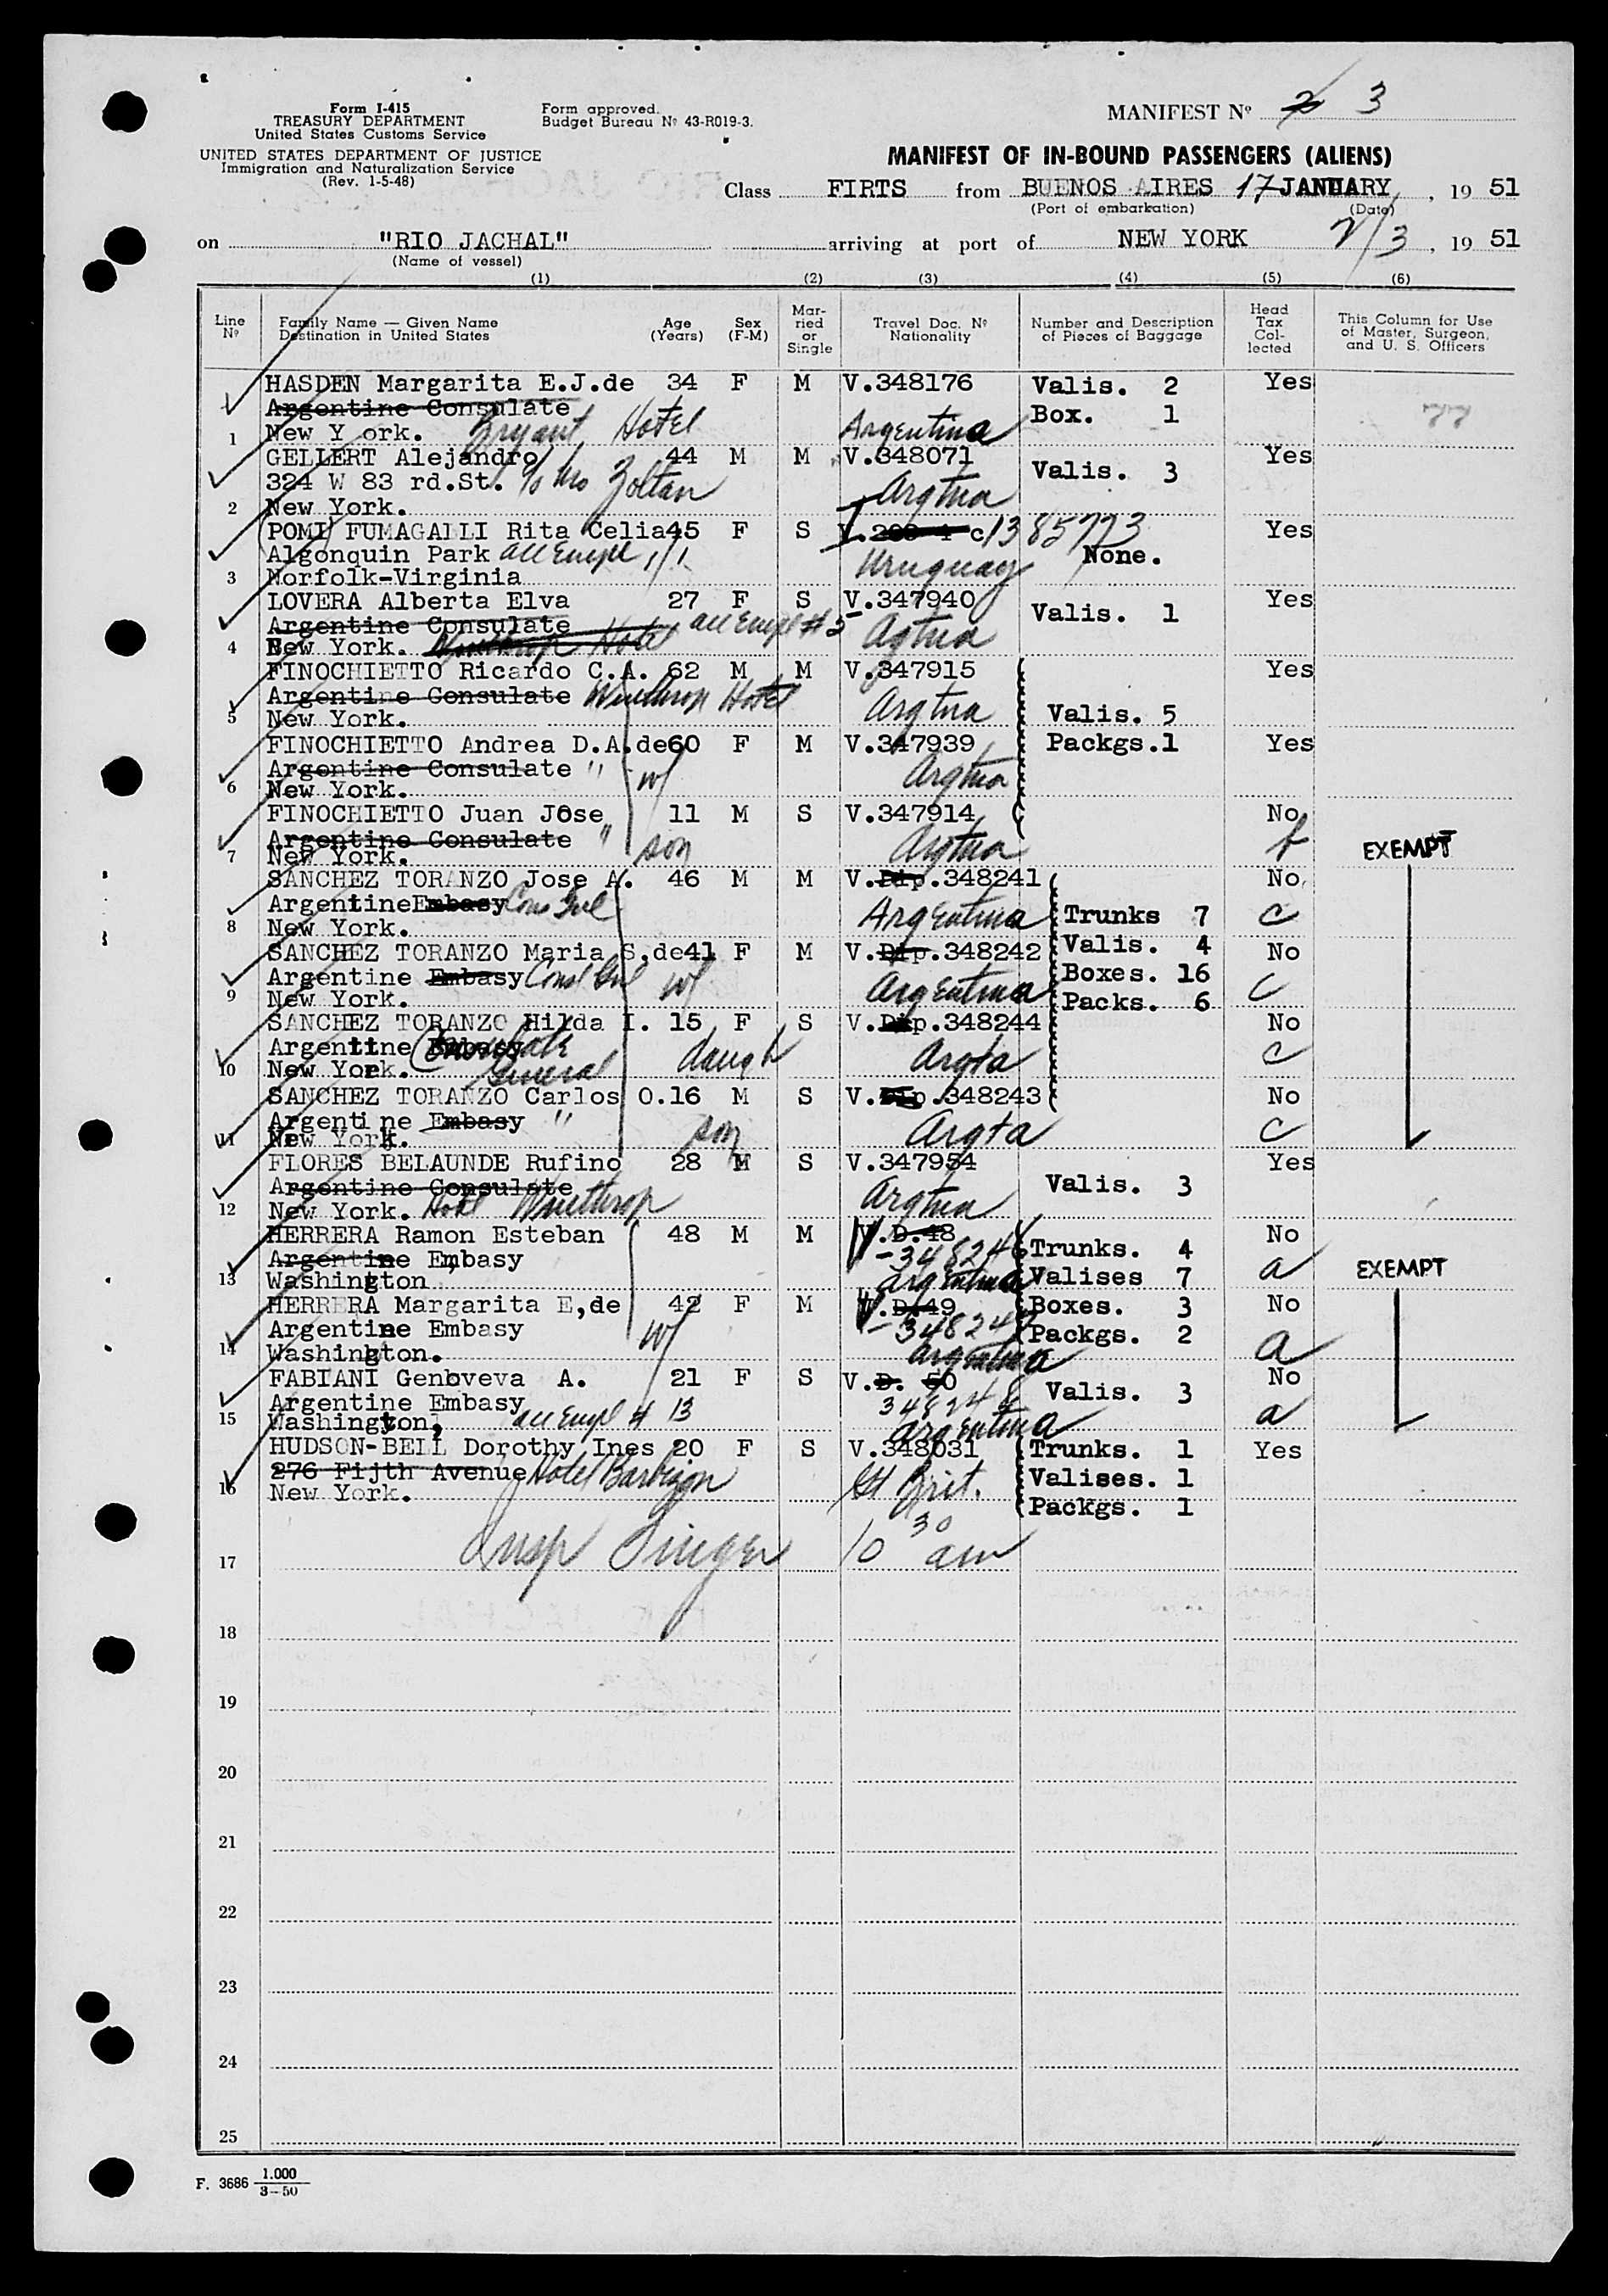 Form I-415
TREASURY DEPARTMENT
United States Customs Service
UNITED STATES DEPARTMENT OF JUSTICE
Immigration and Naturalization Service
(Rev. 1-5-48)
Form approved.
Budget Bureau Nº 43-R019-3.
MANIFEST Nº 2 3
MANIFEST OF IN-BOUND PASSENGERS (ALIENS)
Class FIRTS from BUENOS AIRES 17 JANUARY, 19 51
(Port of embarkation) (Date)
on "RIO JACHAL" arriving at port of NEW YORK 2/3, 19 51
(Name of vessel)
(1) (2) (3) (4) (5) (6)
Line Nº
Family Name — Given Name
Destination in United States
Age (Years)
Sex (F-M)
Married or Single
Travel Doc. Nº
Nationality
Number and Description of Pieces of Baggage
Head Tax Collected
This Column for Use of Master, Surgeon, and U. S. Officers
HASDEN Margarita E.J.de 34 F M V.348176 Valis. 2 Yes
Argentine Consulate Box. 1
1 New Y ork. Bryant Hotel Argentina
GELLERT Alejandro 44 M M V.348071 Yes
324 W 83 rd.St. c/o Mo Zoltan Valis. 3
2 New York. Argtna
(POMI) FUMAGALLI Rita Celia 45 F S c/13 85773 Yes
Algonquin Park acc Empl None.
3 Norfolk-Virginia Uruguay
LOVERA Alberta Elva 27 F S V.347940 Yes
Argentine Consulate acc Empl #5 Valis. 1
4 New York. Winthrop Hotel Agtna
FINOCHIETTO Ricardo C.A. 62 M M V.347915 Yes
Argentine Consulate Winthrop Hotel
5 New York. Argtna Valis. 5
FINOCHIETTO Andrea D.A.de 60 F M V.347939 Packgs.1 Yes
Argentine Consulate " wf
6 New York. Argtna
FINOCHIETTO Juan Jose 11 M S V.347914 No
Argentine Consulate "
7 New York. son Argtna f EXEMPT
SANCHEZ TORANZO Jose A. 46 M M V.Dip.348241 No
Argentine Embasy Cons Gnl Trunks 7
8 New York. Argentina C
SANCHEZ TORANZO Maria S.de 41 F M V.Dip.348242 Valis. 4 No
Argentine Embasy Consl Gnl wf Boxes. 16
9 New York. Argentina Packs. 6 C
SANCHEZ TORANZO Hilda I. 15 F S V.Dip.348244 No
Argentine Embasy Consulate
10 New York. General daugh Argta C
SANCHEZ TORANZO Carlos O. 16 M S V.Dip.348243 No
Argenti ne Embasy "
11 New York. son Argta C
FLORES BELAUNDE Rufino 28 M S V.347954 Yes
Argentine Consulate Valis. 3
12 New York. Hotel Winthrop Argtna
HERRERA Ramon Esteban 48 M M V.D.48 No
Argentine Embasy 348246 Trunks. 4
13 Washington Argentina Valises 7 a EXEMPT
HERRERA Margarita E,de 42 F M V.D.49 Boxes. 3 No
Argentine Embasy wf 348247 Packgs. 2
14 Washington. Argentina a
FABIANI Genoveva A. 21 F S V.D. 50 No
Argentine Embasy 348248 Valis. 3
15 Washington, acc Empl # 13 Argentina a
HUDSON-BELL Dorothy Ines 20 F S V.348031 Trunks. 1 Yes
276 Fijth Avenue Hotel Barbizon Valises. 1
16 New York. Gt Brit. Packgs. 1
17 Insp Singer 10 30 am
18
19
20
21
22
23
24
25
F. 3686 1.000
3-50